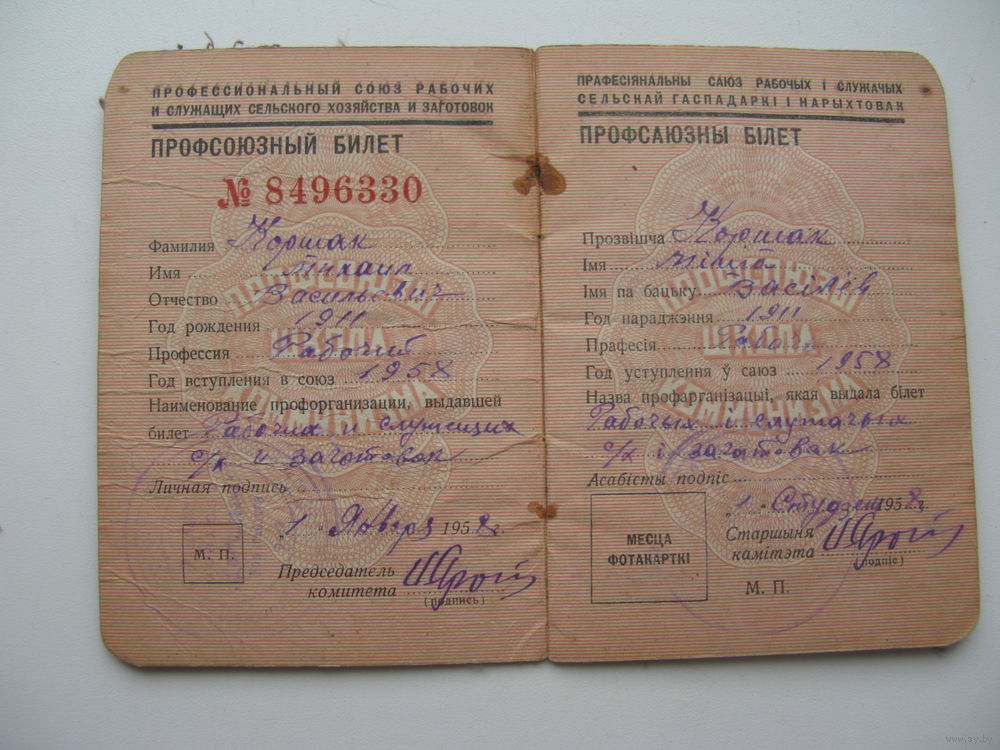 ПРОФЕССИОНАЛЬНЫЙ СОЮЗ РАБОЧИХ
И СЛУЖАЩИХ СЕЛЬСКОГО ХОЗЯЙСТВА И ЗАГОТОВОК
ПРОФСОЮЗНЫЙ БИЛЕТ
№ 8496330
Фамилия Коршак
Имя Михаил
Отчество Васильевич
Год рождения 1911
Профессия Рабочий
Год вступления в союз 1958
Наименование профорганизации, выдавшей
билет Рабочих и служащих
с/х и заготовок
Личная подпись
„1“ Января 1958 г.
М. П.
Председатель
комитета
(подпись)
ПРАФЕСІЯНАЛЬНЫ САЮЗ РАБОЧЫХ І СЛУЖАЧЫХ
СЕЛЬСКАЙ ГАСПАДАРКІ І НАРЫХТОВАК
ПРАФСАЮЗНЫ БІЛЕТ
Прозвішча Коршак
Імя
Імя па бацьку Васілев
Год нараджэння 1911
Прафесія Рабоч
Год уступлення ў саюз 1958
Назва профарганізацыі, якая выдала білет
Рабочых и служачых
с/х і заготовак
Асабісты подпіс
„1“ Студзеня 1958 г.
МЕСЦА
ФОТАКАРТКІ
Старшыня
камітэта
(подпіс)
М. П.
ПРОФСОЮЗЫ
ШКОЛА
КОММУНИЗМА
ПРАФСАЮЗЫ
ШКОЛА
КОМУНІЗМА
www.ay.by